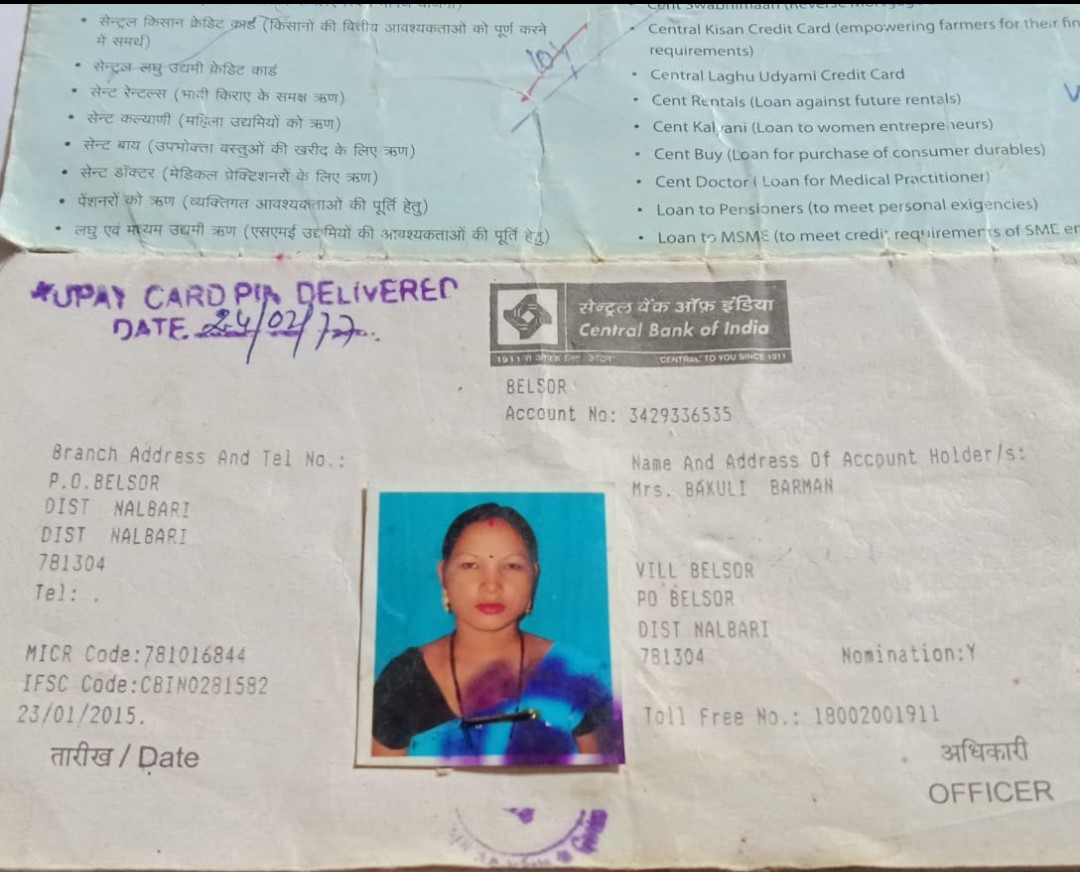 सेन्ट्रल किसान क्रेडिट कार्ड (किसानो की वित्तीय आवश्यकताओं को पूर्ण करने
में समर्थ)
सेन्ट्रल लघु उद्यमी क्रेडिट कार्ड
सेन्ट रेन्टल्स (भावी किराए के समक्ष ऋण)
सेन्ट कल्याणी (महिला उद्यमियों को ऋण)
सेन्ट बाय (उपभोक्ता वस्तुओं की खरीद के लिए ऋण)
सेन्ट डॉक्टर (मेडिकल प्रेक्टिशनरों के लिए ऋण)
पेंशनरों को ऋण (व्यक्तिगत आवश्यकताओं की पूर्ति हेतु)
लघु एवं मध्यम उद्यमी ऋण (एसएमई उद्यमियों की आवश्यकताओं की पूर्ति हेतु)
Central Kisan Credit Card (empowering farmers for their fin
requirements)
Central Laghu Udyami Credit Card
Cent Rentals (Loan against future rentals)
Cent Kalyani (Loan to women entrepreneurs)
Cent Buy (Loan for purchase of consumer durables)
Cent Doctor ( Loan for Medical Practitioner)
Loan to Pensioners (to meet personal exigencies)
Loan to MSME (to meet credit requirements of SME en
RUPAY CARD PIN DELIVERED
DATE 24/02/17
सेन्ट्रल बैंक ऑफ़ इंडिया
Central Bank of India
CENTRAL TO YOU SINCE 1911
BELSOR
Account No: 3429336535
Branch Address And Tel No.:
P.O.BELSOR
DIST NALBARI
DIST NALBARI
781304
Tel: .
MICR Code:781016844
IFSC Code:CBIN0281582
23/01/2015.
तारीख / Date
Name And Address Of Account Holder/s:
Mrs. BAKULI BARMAN
VILL BELSOR
PO BELSOR
DIST NALBARI
781304 Nomination:Y
Toll Free No.: 18002001911
अधिकारी
OFFICER